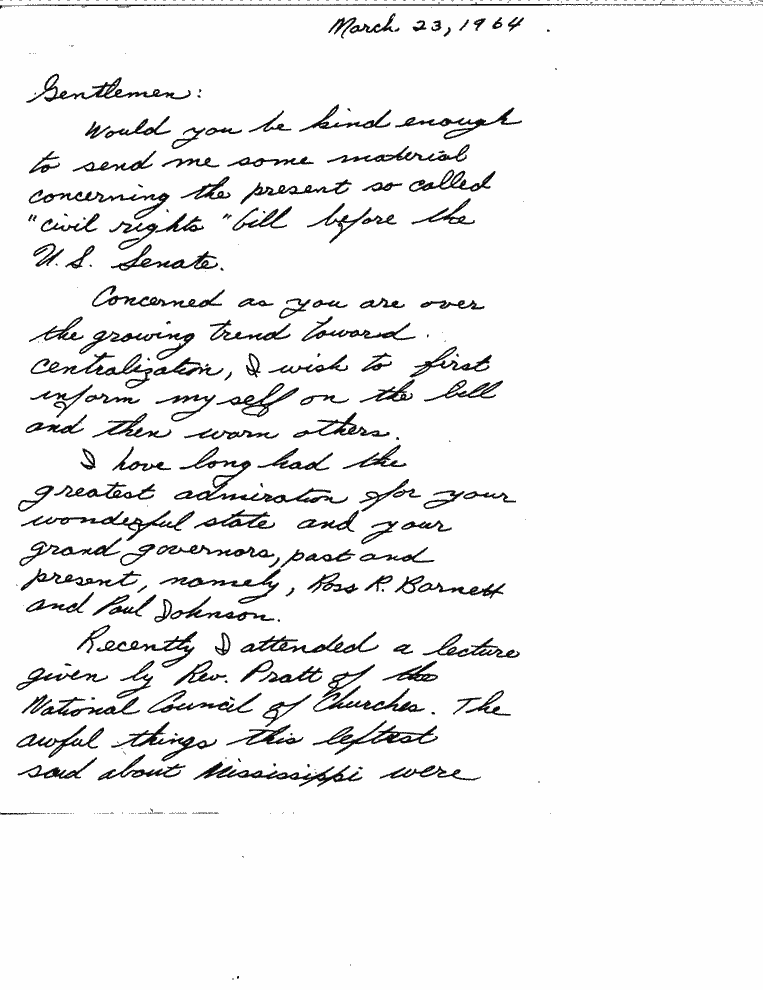 March 23, 1964
Gentlemen:
Would you be kind enough
to send me some material
concerning the present so called
"civil rights" bill before the
U. S. Senate.
Concerned as you are over
the growing trend toward
centralization, I wish to first
inform my self on the bill
and then warn others.
I have long had the
greatest admiration for your
wonderful state and your
grand governors, past and
present, namely, Ross R. Barnett
and Paul Johnson.
Recently I attended a lecture
given by Rev. Pratt of the
National Council of Churches. The
awful things this leftest
said about Mississippi were